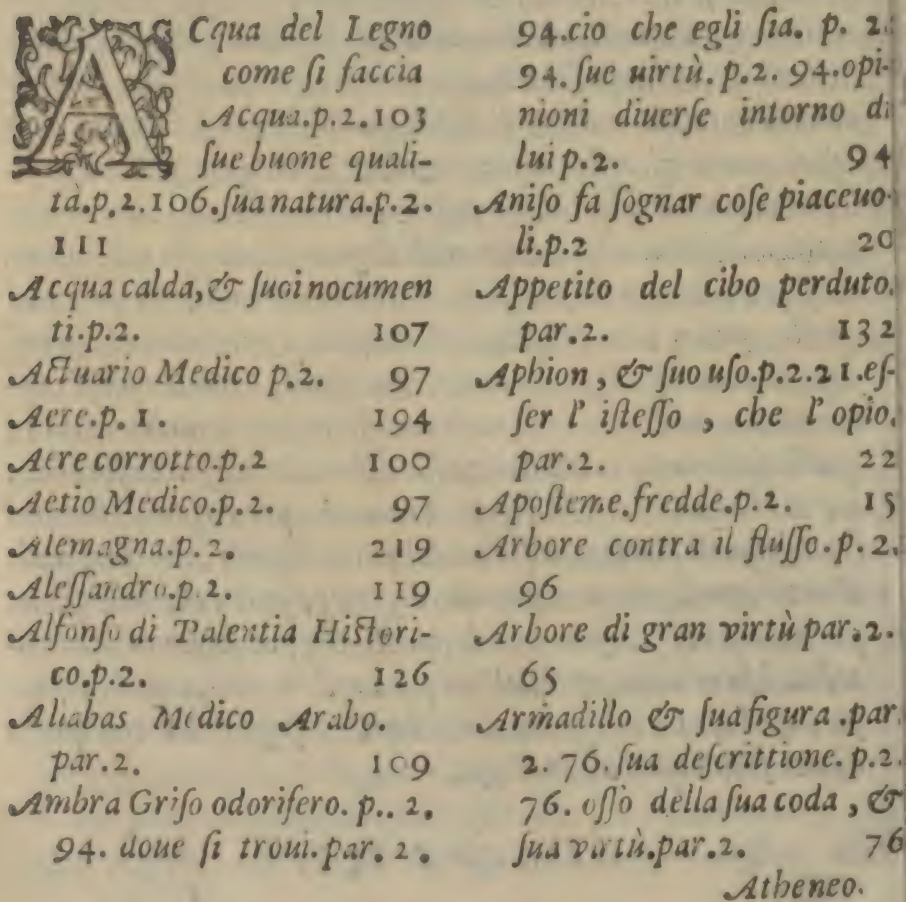 ACqua del Legno
come ſi faccia
Acqua.p.2.103
ſue buone quali-
tà.p.2.106.ſua natura.p.2.
111
Acqua calda,& ſuoi nocumen
ti.p.2. 107
Actuario Medico p.2. 97
Aere.p.1. 194
Aere corrotto.p.2 100
Aetio Medico.p.2. 97
Alemagna.p.2. 219
Aleſſandro.p.2. 119
Alfonſo di Palentia Hiſtori-
co.p.2. 126
Aliabas Medico Arabo.
par.2. 109
Ambra Griſo odorifero. p.. 2.
94. doue ſi troui.par. 2.
94.cio che egli ſia. p. 2.
94. ſue uirtù. p.2. 94.opi-
nioni diuerſe intorno di
lui p.2. 94
Aniſo fa ſognar coſe piaceuo-
li.p.2 20
Appetito del cibo perduto.
par.2. 132
Aphion, & ſuo uſo.p.2.21.eſ-
ſer l' iſteſſo, che l' opio.
par.2. 22
Apoſteme.fredde.p.2. 15
Arbore contra il fluſſo.p.2.
96
Arbore di gran virtù par.2.
65
Armadillo & ſua figura .par.
2. 76. ſua deſcrittione. p.2.
76. oſſo della ſua coda, &
ſua virtù.par.2. 76
Atheneo.